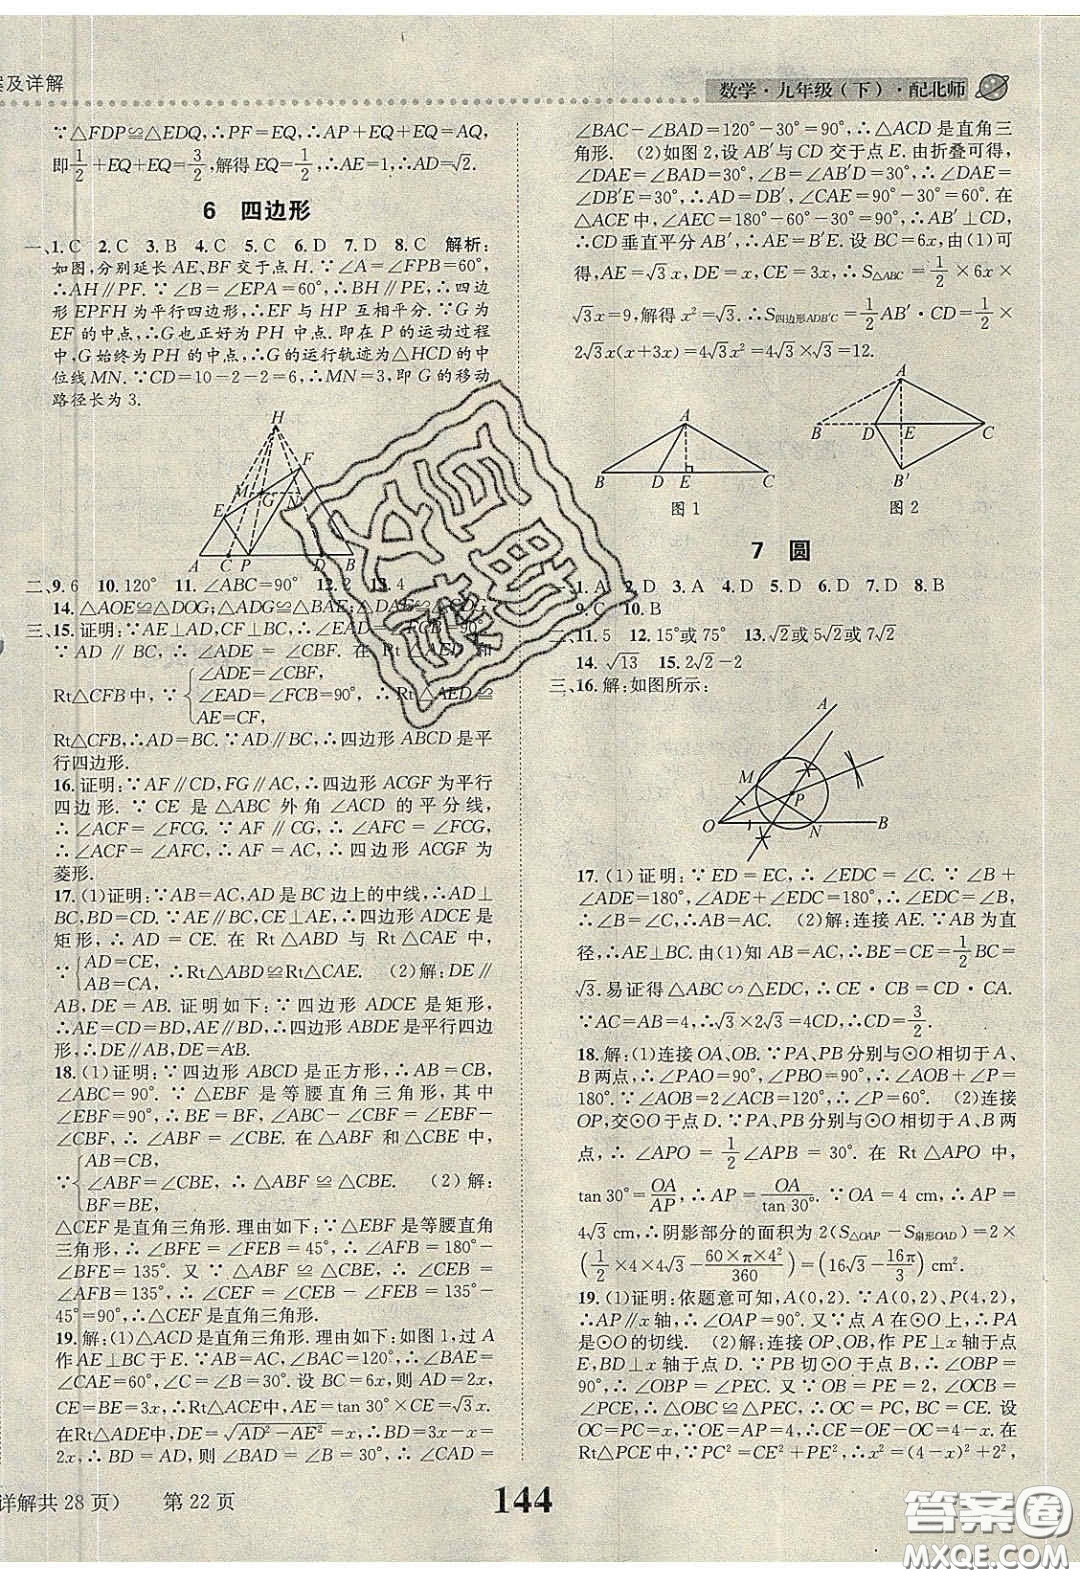 案及详解
数学·九年级(下)·配北师
∵△FDP≌△EDQ,∴PF=EQ,∴AP+EQ+EQ=AQ,
即1/2+EQ+EQ=3/2,解得EQ=1/2.∴AE=1,∴AD=√2.
6 四边形
一、1.C 2.C 3.B 4.C 5.C 6.D 7.D 8.C 解析:
如图,分别延长AE、BF交于点H.∵∠A=∠FPB=60°,
∴AH∥PF.∵∠B=∠EPA=60°,∴BH∥PE,∴四边
形EPFH为平行四边形,∴EF与HP互相平分.∵G为
EF的中点,∴G也正好为PH中点.即在P的运动过程
中,G始终为PH的中点,∴G的运行轨迹为△HCD的中
位线MN.∵CD=10-2-2=6,∴MN=3,即G的移动
路径长为3.
H
F
M G N
E
A C P D B
二、9.6 10.120° 11.∠ABC=90° 12.2 13.4
14.△AOE≌△DOG;△ADG≌△BAE;△DAE≌△CDG
三、15.证明:∵AE⊥AD,CF⊥BC,∴∠EAD=∠FCB=90°.
∵AD∥BC,∴∠ADE=∠CBF.在Rt△AED和
Rt△CFB中,∵{∠ADE=∠CBF, ∠EAD=∠FCB=90°, AE=CF, ∴Rt△AED≌
Rt△CFB,∴AD=BC.∵AD∥BC,∴四边形ABCD是平
行四边形.
16.证明:∵AF∥CD,FG∥AC,∴四边形ACGF为平行
四边形.∵CE是△ABC外角∠ACD的平分线,
∴∠ACF=∠FCG.∵AF∥CG,∴∠AFC=∠FCG,
∴∠ACF=∠AFC,∴AC=AF,∴四边形ACGF为
菱形.
17.(1)证明:∵AB=AC,AD是BC边上的中线,∴AD⊥
BC,BD=CD.∵AE∥BC,CE⊥AE,∴四边形ADCE是
矩形,∴AD=CE.在Rt△ABD与Rt△CAE中,
∵{AD=CE, AB=CA, ∴Rt△ABD≌Rt△CAE. (2)解:DE∥
AB,DE=AB.证明如下:∵四边形ADCE是矩形,
∴AE=CD=BD,AE∥BD,∴四边形ABDE是平行四边
形,∴DE∥AB,DE=AB.
18.(1)证明:∵四边形ABCD是正方形,∴AB=CB,
∠ABC=90°.∵△EBF是等腰直角三角形,其中
∠EBF=90°,∴BE=BF,∠ABC-∠CBF=∠EBF-
∠CBF,∴∠ABF=∠CBE.在△ABF和△CBE中,
∵{AB=CB, ∠ABF=∠CBE, BF=BE, ∴△ABF≌△CBE. (2)解:
△CEF是直角三角形.理由如下:∵△EBF是等腰直角
三角形,∴∠BFE=∠FEB=45°,∴∠AFB=180°-
∠BFE=135°.又∵△ABF≌△CBE,∴∠CEB=
∠AFB=135°,∴∠CEF=∠CEB-∠FEB=135°-
45°=90°,∴△CEF是直角三角形.
19.解:(1)△ACD是直角三角形.理由如下:如图1,过A
作AE⊥BC于E.∵AB=AC,∠BAC=120°,∴∠BAE=
∠CAE=60°,∠C=∠B=30°.设BC=6x,则AD=2x,
CE=BE=3x,∴Rt△ACE中,AE=tan 30°×CE=√3x.
在Rt△ADE中,DE=√(AD²-AE²)=x,∴BD=3x-x=
2x,∴BD=AD,则∠BAD=∠B=30°,∴∠CAD=
∠BAC-∠BAD=120°-30°=90°,∴△ACD是直角三
角形. (2)如图2,设AB′与CD交于点E.由折叠可得,
∠DAE=∠BAD=30°,∠B=∠AB′D=30°,∴∠DAE=
∠DB′E=30°,∴AD=DB′,∠CAE=90°-30°=60°.在
△ACE中,∠AEC=180°-60°-30°=90°,∴AB′⊥CD,
∴CD垂直平分AB′,∴AE=B′E.设BC=6x,由(1)可
得,AE=√3x,DE=x,CE=3x,∴S△ABC=1/2×6x×
√3x=9,解得x²=√3.∴S四边形ADB′C=1/2AB′·CD=1/2×
2√3x(x+3x)=4√3x²=4√3×√3=12.
A
B D E C
图1
A
B D E C
B′
图2
7 圆
一、1.A 2.D 3.A 4.D 5.D 6.D 7.D 8.B
9.C 10.B
二、11.5 12.15°或75° 13.√2或5√2或7√2
14.√13 15.2√2-2
三、16.解:如图所示:
A
M
P
O N B
17.(1)证明:∵ED=EC,∴∠EDC=∠C.∵∠B+
∠ADE=180°,∠ADE+∠EDC=180°,∴∠EDC=∠B,
∴∠B=∠C,∴AB=AC. (2)解:连接AE.∵AB为直
径,∴AE⊥BC.由(1)知AB=AC,∴BE=CE=1/2BC=
√3.易证得△ABC∽△EDC,∴CE·CB=CD·CA.
∵AC=AB=4,∴√3×2√3=4CD,∴CD=3/2.
18.解:(1)连接OA、OB.∵PA、PB分别与⊙O相切于A、
B两点,∴∠PAO=90°,∠PBO=90°,∴∠AOB+∠P=
180°.∵∠AOB=2∠ACB=120°,∴∠P=60°. (2)连接
OP,交⊙O于点D.∵PA、PB分别与⊙O相切于A、B两
点,∴∠APO=1/2∠APB=30°.在Rt△APO中,
tan 30°=OA/AP,∴AP=OA/tan 30°.∵OA=4 cm,∴AP=
4√3 cm,∴阴影部分的面积为2(S△OAP-S扇形OAD)=2×
(1/2×4×4√3-60×π×4²/360)=(16√3-16π/3)cm².
19.(1)证明:依题意可知,A(0,2).∵A(0,2)、P(4,2),
∴AP∥x轴,∴∠OAP=90°.又∵点A在⊙O上,∴PA
是⊙O的切线. (2)解:连接OP、OB,作PE⊥x轴于点
E,BD⊥x轴于点D.∵PB切⊙O于点B,∴∠OBP=
90°,∴∠OBP=∠PEC.又∵OB=PE=2,∠OCB=
∠PCE,∴△OBC≌△PEC,∴OC=PC,BC=CE.设
OC=PC=x,∵OE=AP=4,∴CE=OE-OC=4-x.在
Rt△PCE中,∵PC²=CE²+PE²,∴x²=(4-x)²+2²,
详解共28页) 第22页
144
答案圈
MXQE.COM